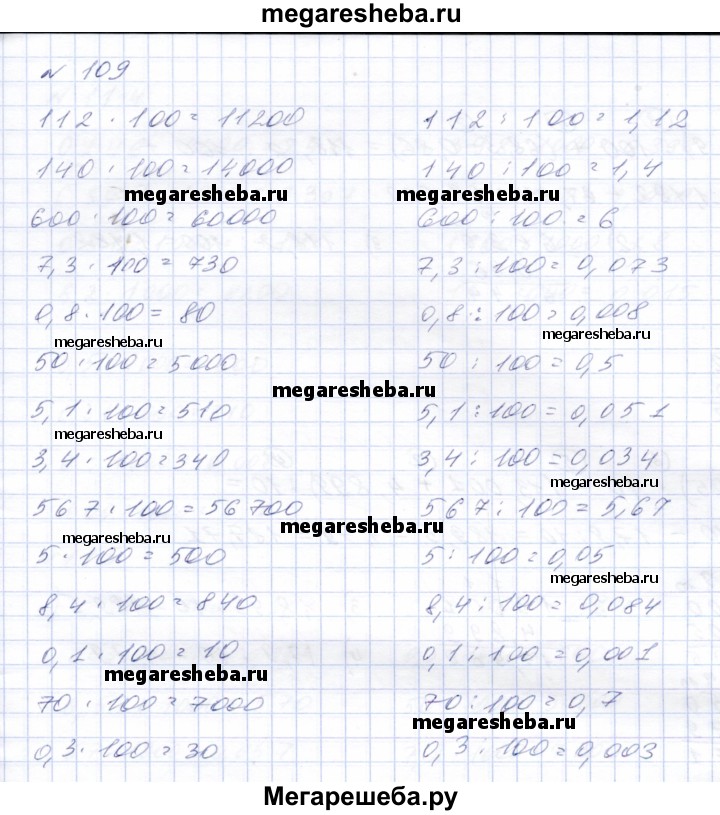 megaresheba.ru
№ 109
112 · 100 = 11200 112 : 100 = 1,12
140 · 100 = 14000 140 : 100 = 1,4
megaresheba.ru megaresheba.ru
600 · 100 = 60000 600 : 100 = 6
7,3 · 100 = 730 7,3 : 100 = 0,073
0,8 · 100 = 80 0,8 : 100 = 0,008
megaresheba.ru megaresheba.ru
50 · 100 = 5000 50 : 100 = 0,5
megaresheba.ru
5,1 · 100 = 510 5,1 : 100 = 0,051
megaresheba.ru
3,4 · 100 = 340 3,4 : 100 = 0,034
megaresheba.ru
567 · 100 = 56700 567 : 100 = 5,67
megaresheba.ru
megaresheba.ru
5 · 100 = 500 5 : 100 = 0,05
megaresheba.ru
8,4 · 100 = 840 8,4 : 100 = 0,084
0,1 · 100 = 10 0,1 : 100 = 0,001
megaresheba.ru
70 · 100 = 7000 70 : 100 = 0,7
megaresheba.ru
0,3 · 100 = 30 0,3 : 100 = 0,003
Мегарешеба.ру